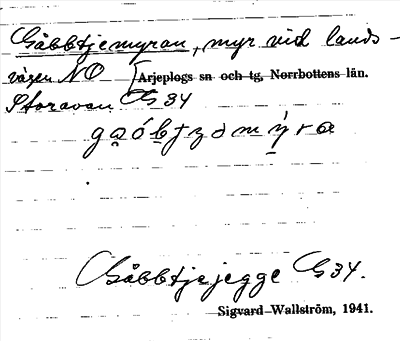 Gåbbtjemyran, myr vid lands-
vägen NO Arjeplogs sn och tg, Norrbottens län.
Storavan G 34
Gåbbtjejegge G 34.
Sigvard Wallström, 1941.